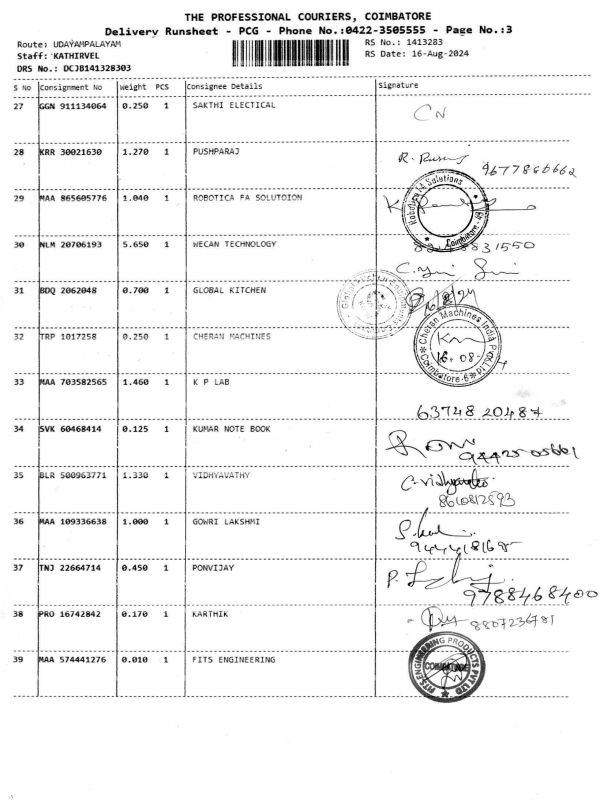 THE PROFESSIONAL COURIERS, COIMBATORE
Delivery Runsheet - PCG - Phone No.:0422-3505555 - Page No.:3
Route: UDAYAMPALAYAM
RS No.: 1413283
Staff: KATHIRVEL
RS Date: 16-Aug-2024
DRS No.: DCJB141328303
S No Consignment No Weight PCS Consignee Details Signature
27 GGN 911134064 0.250 1 SAKTHI ELECTICAL CN
28 KRR 30021630 1.270 1 PUSHPARAJ R.
9677886662
29 MAA 865605776 1.040 1 ROBOTICA FA SOLUTOION
Robotica FA Solutions Coimbatore
30 NLM 20706193 5.650 1 WECAN TECHNOLOGY 31550
31 BDQ 2062048 0.700 1 GLOBAL KITCHEN 16/8/24
Global Kitchen
32 TRP 1017258 0.250 1 CHERAN MACHINES
Cheran Machines India Coimbatore-6
16.08-
33 MAA 703582565 1.460 1 K P LAB
63748 20487
34 SVK 60468414 0.125 1 KUMAR NOTE BOOK
35 BLR 500963771 1.330 1 VIDHYAVATHY
8610812593
36 MAA 109336638 1.000 1 GOWRI LAKSHMI
37 TNJ 22664714 0.450 1 PONVIJAY P.
9788468400
38 PRO 16742842 0.170 1 KARTHIK 8807236781
39 MAA 574441276 0.010 1 FITS ENGINEERING
FITS ENGINEERING PRODUCTS PVT LTD
COIMBATORE